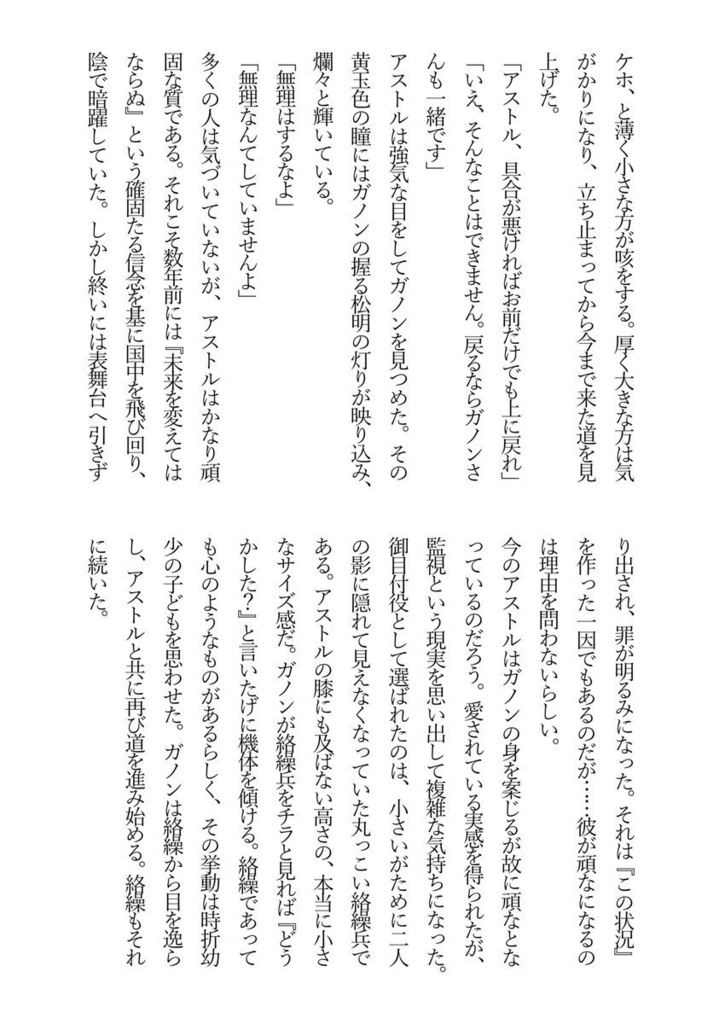 ケホ、と薄く小さな方が咳をする。厚く大きな方は気
がかりになり、立ち止まってから今まで来た道を見
上げた。
「アストル、具合が悪ければお前だけでも上に戻れ」
「いえ、そんなことはできません。戻るならガノンさ
んも一緒です」
アストルは強気な目をしてガノンを見つめた。その
黄玉色の瞳にはガノンの握る松明の灯りが映り込み、
爛々と輝いている。
「無理はするなよ」
「無理なんてしていませんよ」
多くの人は気づいていないが、アストルはかなり頑
固な質である。それこそ数年前には『未来を変えては
ならぬ』という確固たる信念を基に国中を飛び回り、
陰で暗躍していた。しかし終いには表舞台へ引きず
り出され、罪が明るみになった。それは『この状況』
を作った一因でもあるのだが……彼が頑なになるの
は理由を問わないらしい。
今のアストルはガノンの身を案じるが故に頑なとな
っているのだろう。愛されている実感を得られたが、
監視という現実を思い出して複雑な気持ちになった。
御目付役として選ばれたのは、小さいがために二人
の影に隠れて見えなくなっていた丸っこい絡繰兵で
ある。アストルの膝にも及ばない高さの、本当に小さ
なサイズ感だ。ガノンが絡繰兵をチラと見れば『どう
かした？』と言いたげに機体を傾ける。絡繰であって
も心のようなものがあるらしく、その挙動は時折幼
少の子どもを思わせた。ガノンは絡繰から目を逸ら
し、アストルと共に再び道を進み始める。絡繰もそれ
に続いた。